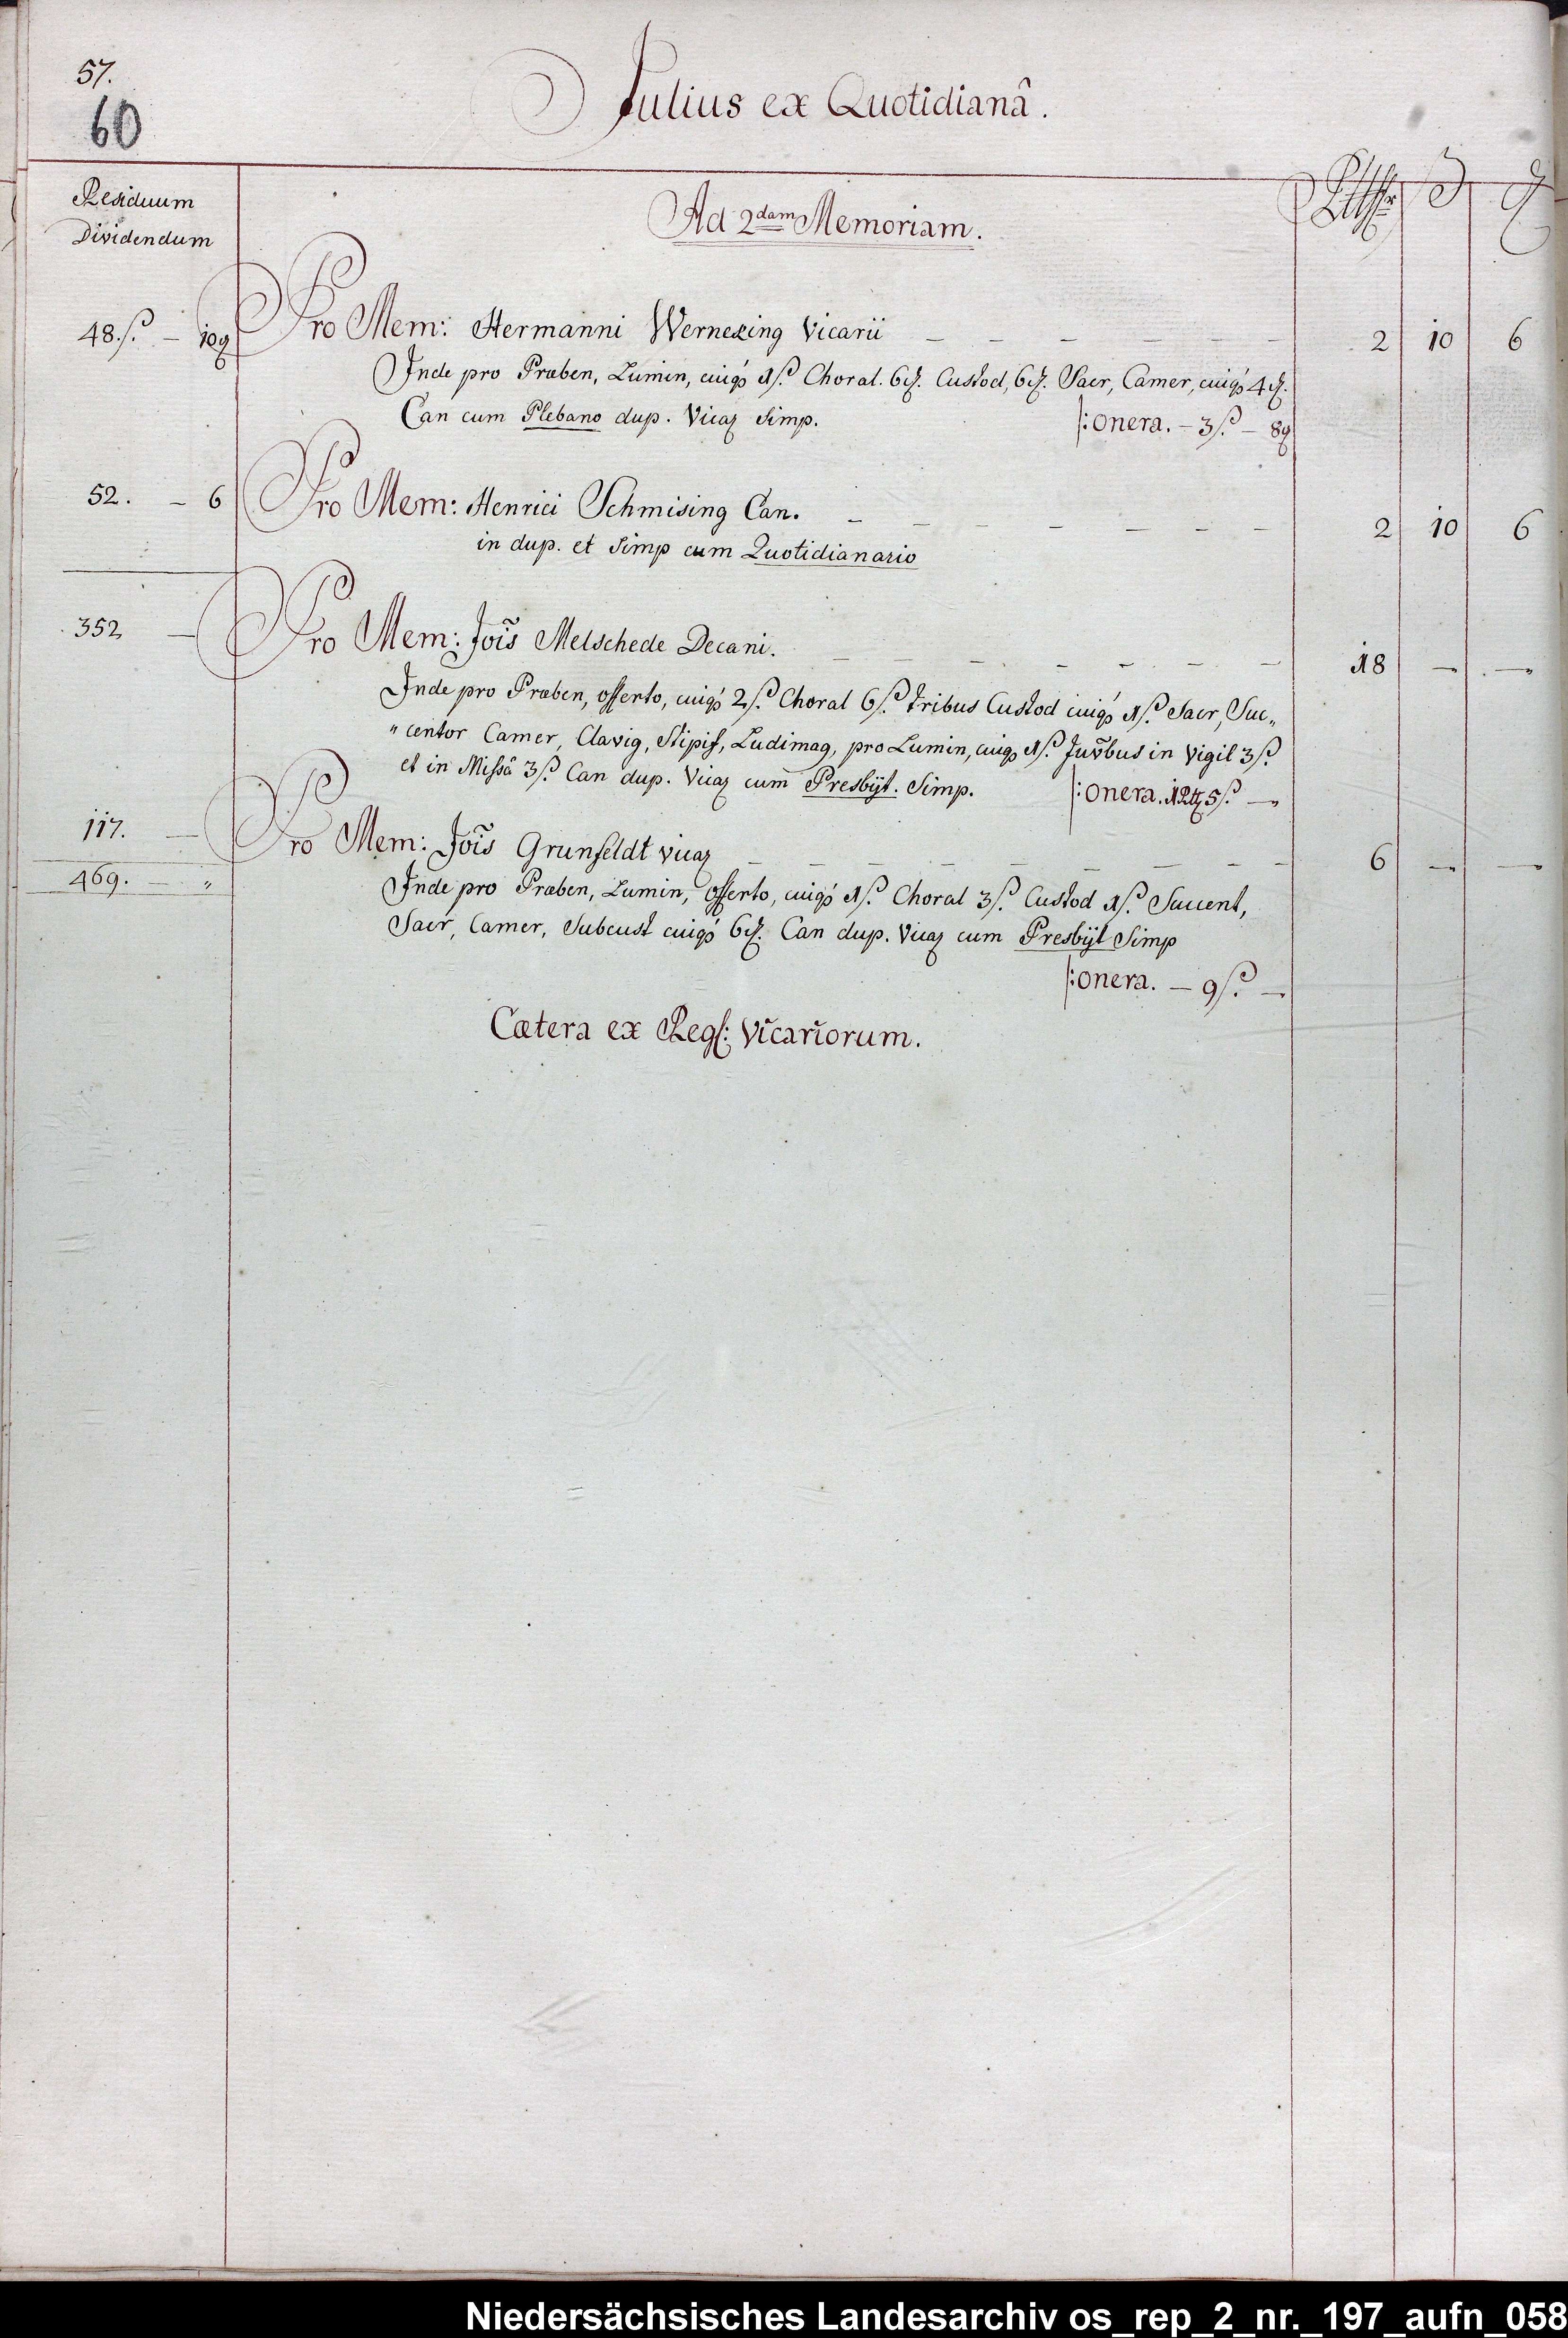 57.
60
Julius ex Quotidianâ.
Residuum
Dividendum
Ad 2dam Memoriam.
48.ß. — 10₰ Pro Mem: Hermanni Wernexing Vicarii — — — — — — 2 10 6
Inde pro Præben, Lumin, cuiq 1ß. Choral. 6₰. Custod, 6₰. Sacr, Camer, cuiq 4₰.
Can cum Plebano dup. Vicar Simp. |: onera. — 3ß. — 8₰
52. — 6 Pro Mem: Henrici Schmising Can. — — — — — — — 2 10 6
in dup. et Simp cum Quotidianario
352 — Pro Mem: Jois̄ Melschede Decani. — — — — — — — 18 — —
Inde pro Præben, offerto, cuiq 2ß. Choral 6ß. tribus Custod cuiq 1ß. Sacr, Suc„
„centor Camer, Clavig, Stipif, Ludimag, pro Lumin, cuiq 1ß. Juv̄bus in Vigil 3ß.
et in Missâ 3ß. Can dup. Vicar cum Presbÿt. Simp. |: onera. 1 5ß. —
117. — Pro Mem: Jois̄ Grunfeldt vicar — — — — — — — — 6 — —
469. — „ Inde pro Præben, Lumin, Offerto, cuiq 1ß. Choral 3ß. Custod 1ß. Succent,
Sacr, Camer, Subcust cuiq 6₰. Can dup. Vicar cum Presbÿt Simp
|: onera. — 9ß. —
Cætera ex Regſ: Vicariorum.
Niedersächsisches Landesarchiv os_rep_2_nr._197_aufn_058